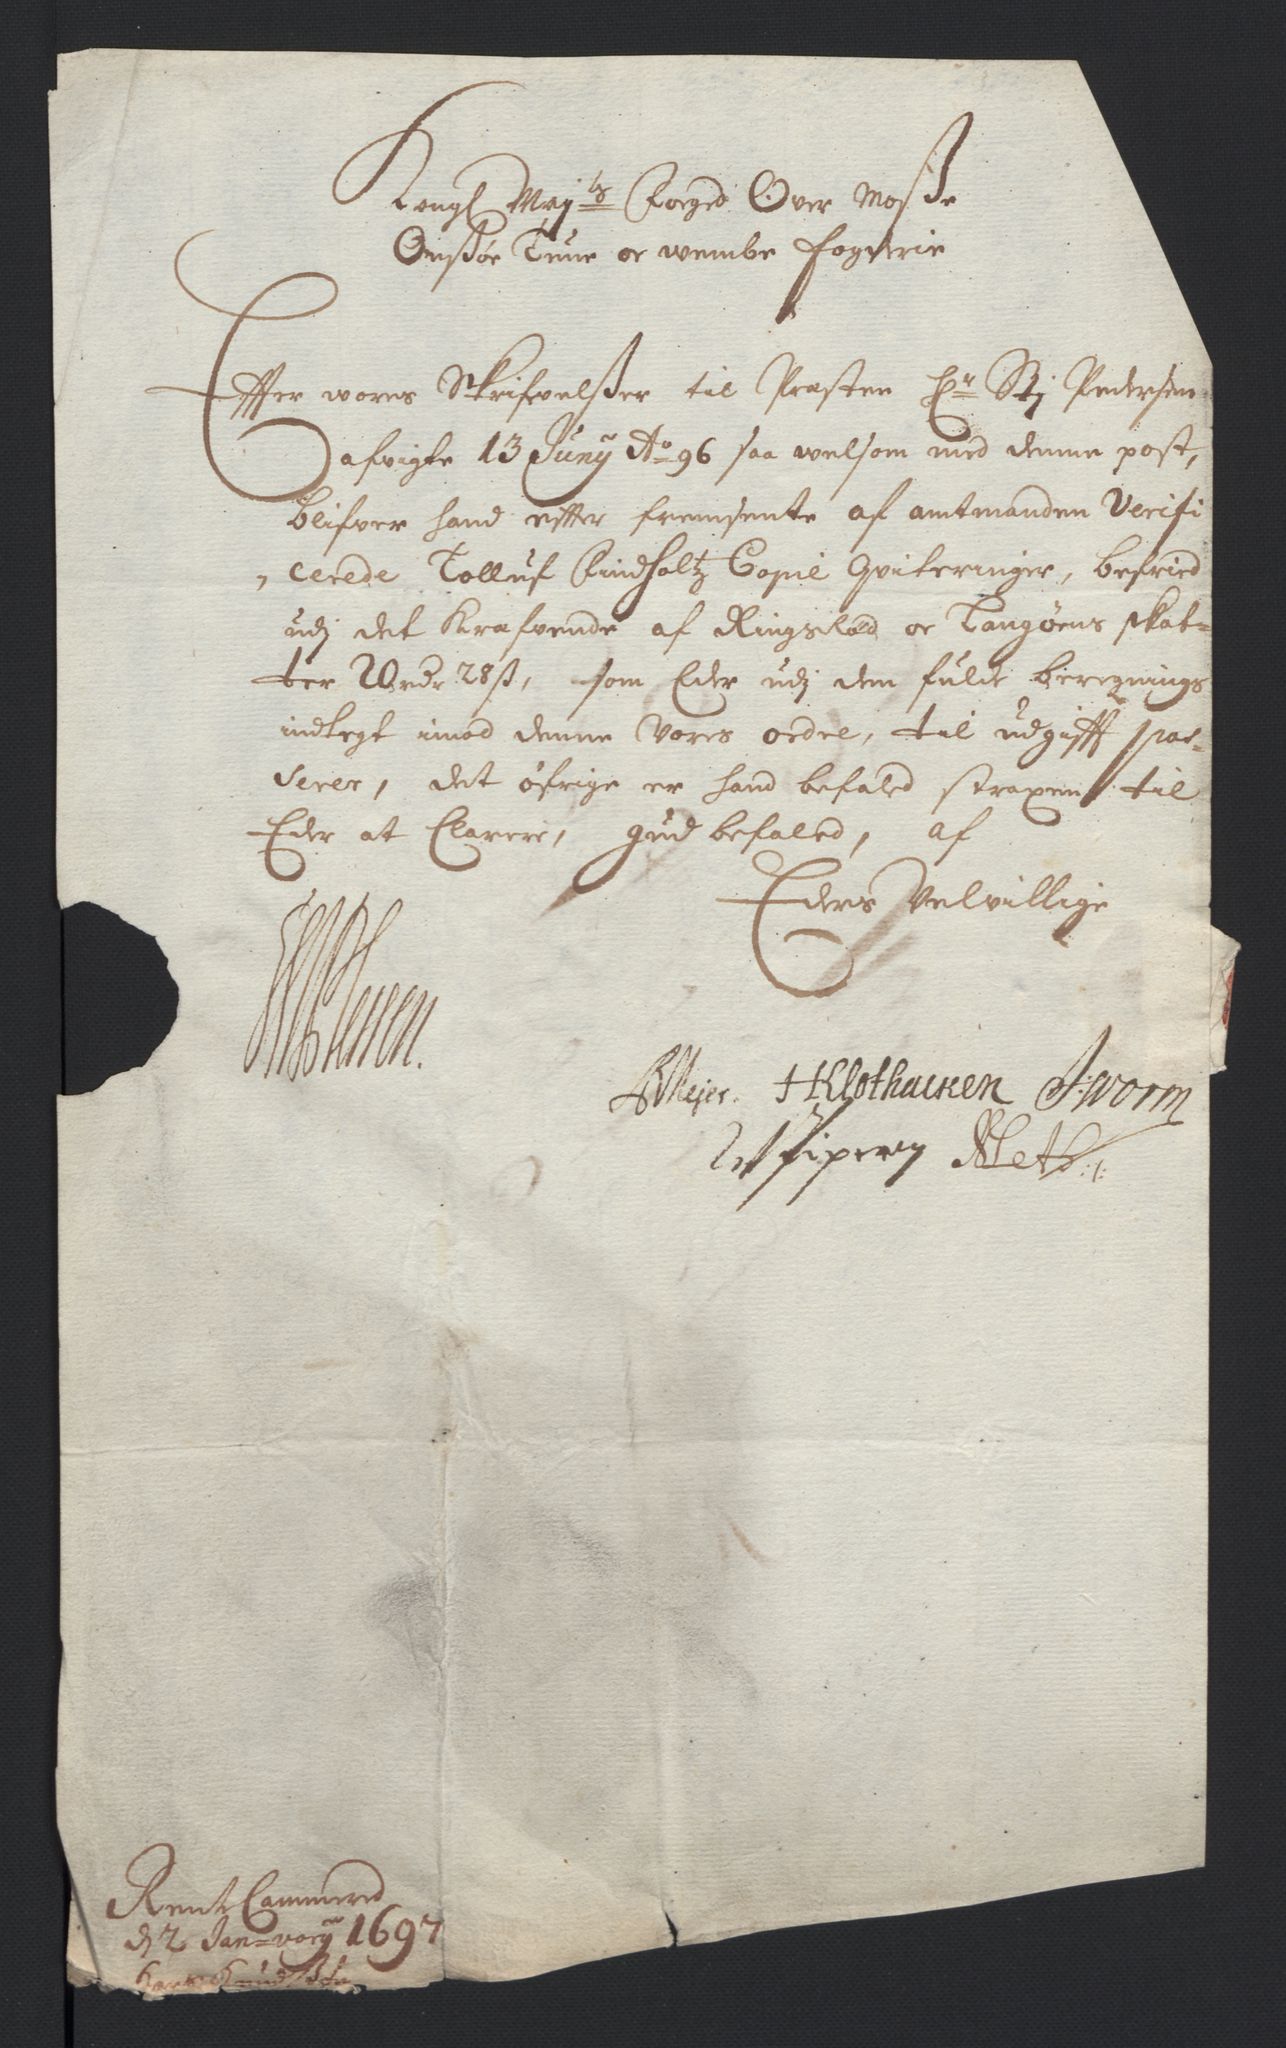 Kongl Maÿ:ts Foeged Over Moße
Onsøe Tune oc wembe fogderie
Effter wores Skrifvelßer til Præsten Hr Stj Pedersen
afvigte 13 Junÿ Ao 96 saa welsom med denne post,
blifver hand effter fremsente af amtmanden Verifi
, cerede Tolluf Findholtz Copie Qviteringer, befried
udj det Krafvende af Ringslød oc Tangøens skat=
ter 28ß, som Eder udj dem fulde beregnings
indtegt imod denne Vores ordre, til udgifft pas=
serer, det øfrige er hand befaled straxen til
Eder at Clarere, gud befaled, af
Eders Velvillige
Plessen.
Meÿer. HKlothacken J:worm
Piperoÿ
Rente Cammered
d 2 Januarÿ 1697